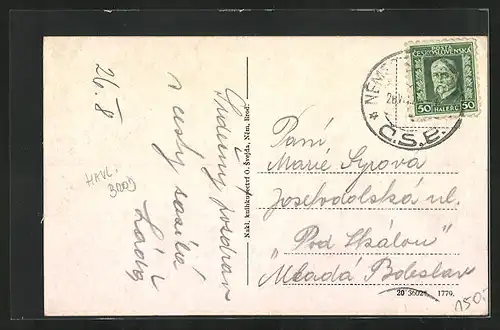 26. 8
Srdečný pozdrav
z cesty zasílá
HAVL.
BROD
Nakl. knihkupectví O. Švejda, Něm. Brod.
POŠTA
ČESKOSLOVENSKÁ
50 HALÉŘŮ 50
NĚM
Č.S.R.
Paní
Marie Syrova
Josefodolská ul.
"Pod Skálou"
Mladá Boleslav
20 36021 1779.
150,-